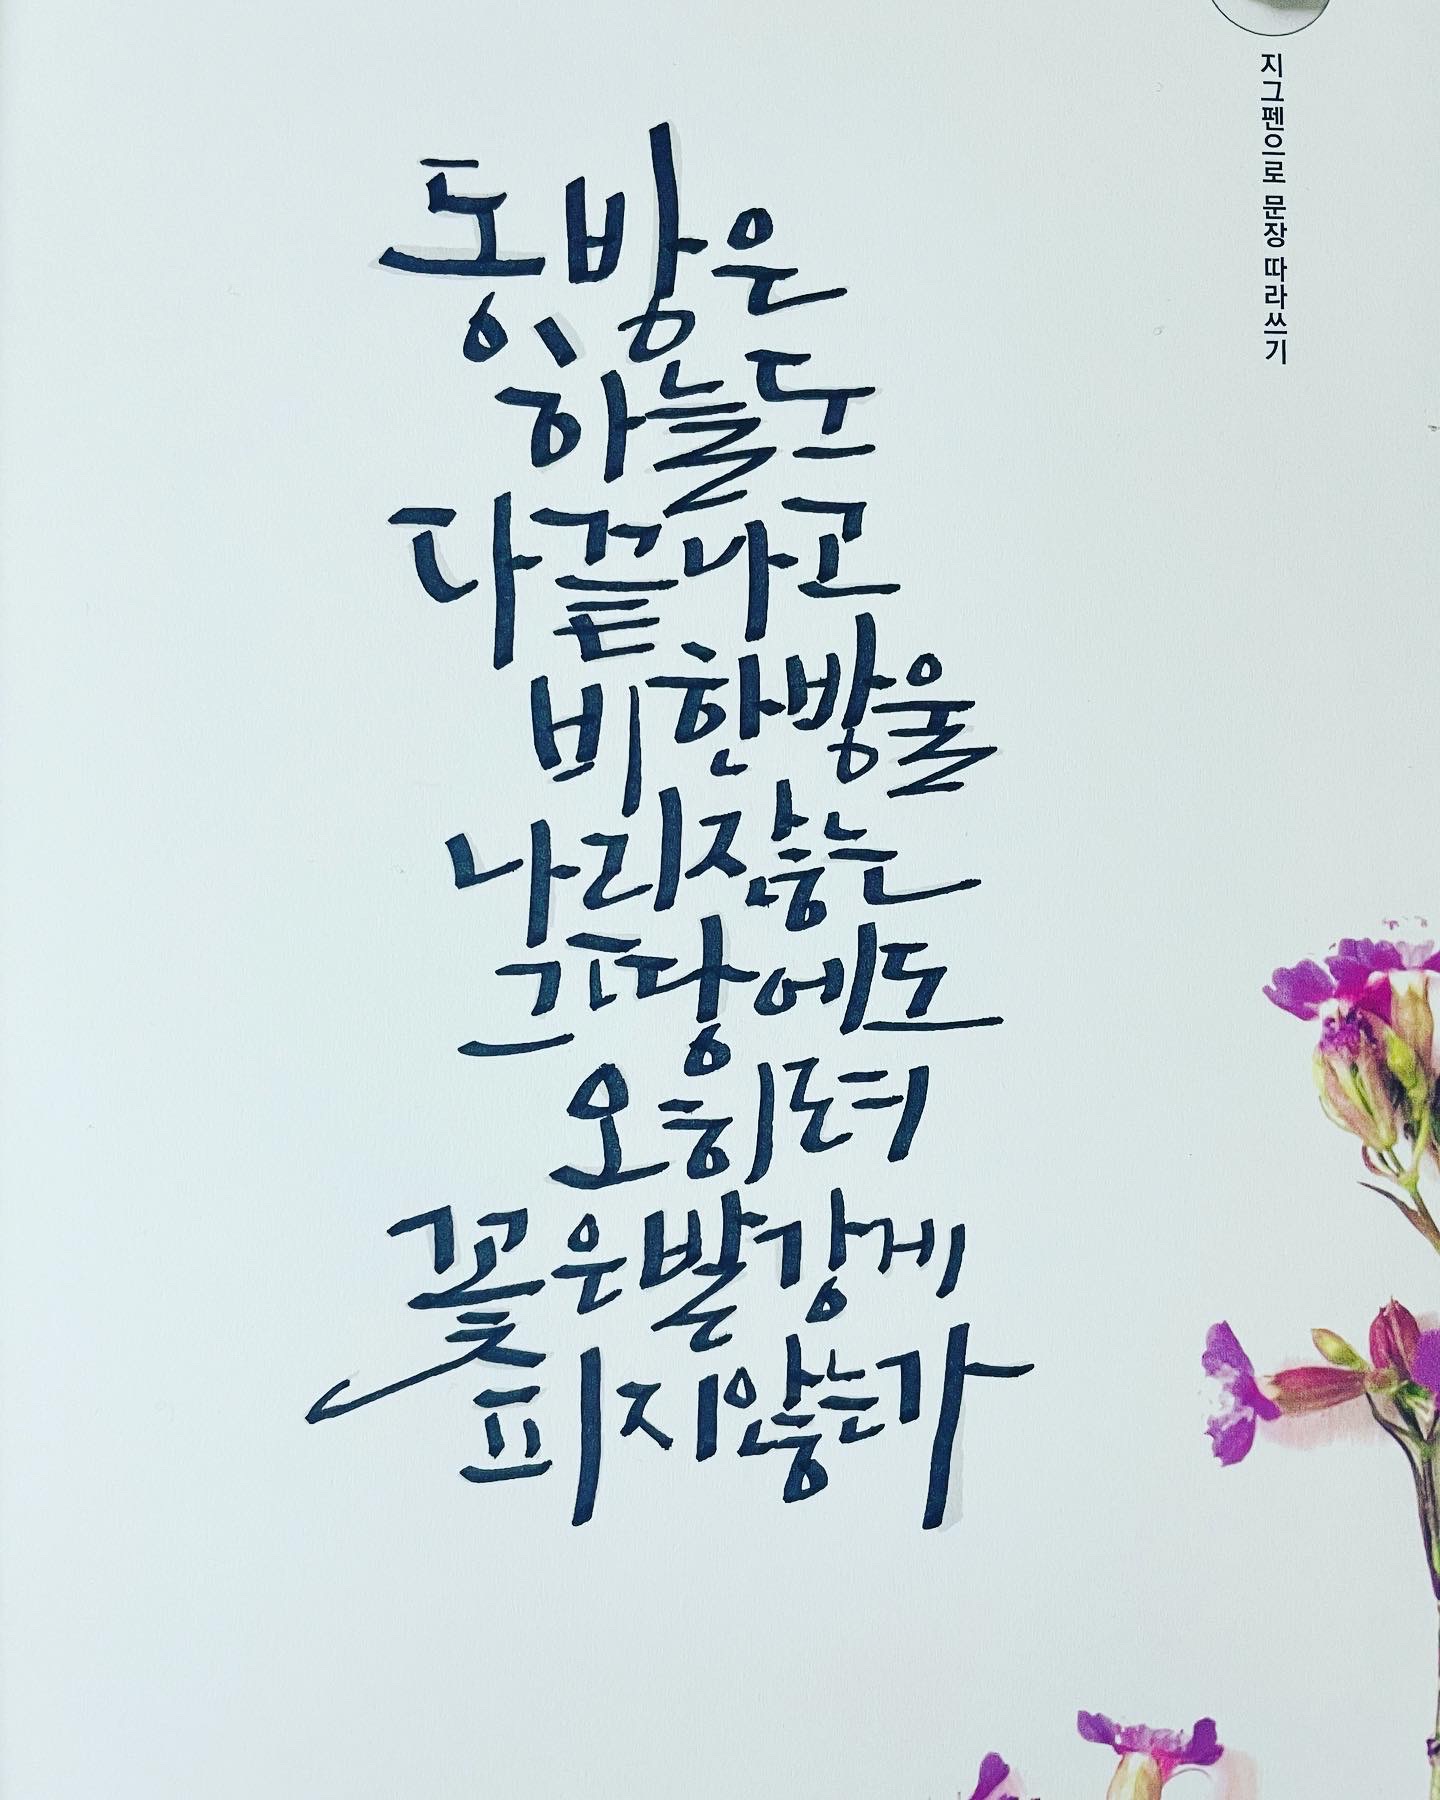 지그펜으로 문장 따라쓰기
동방은
하늘도
다 끝나고
비 한방울
나리쟎는
그 땅에도
오히려
꽃은 발갛게
피지않는가